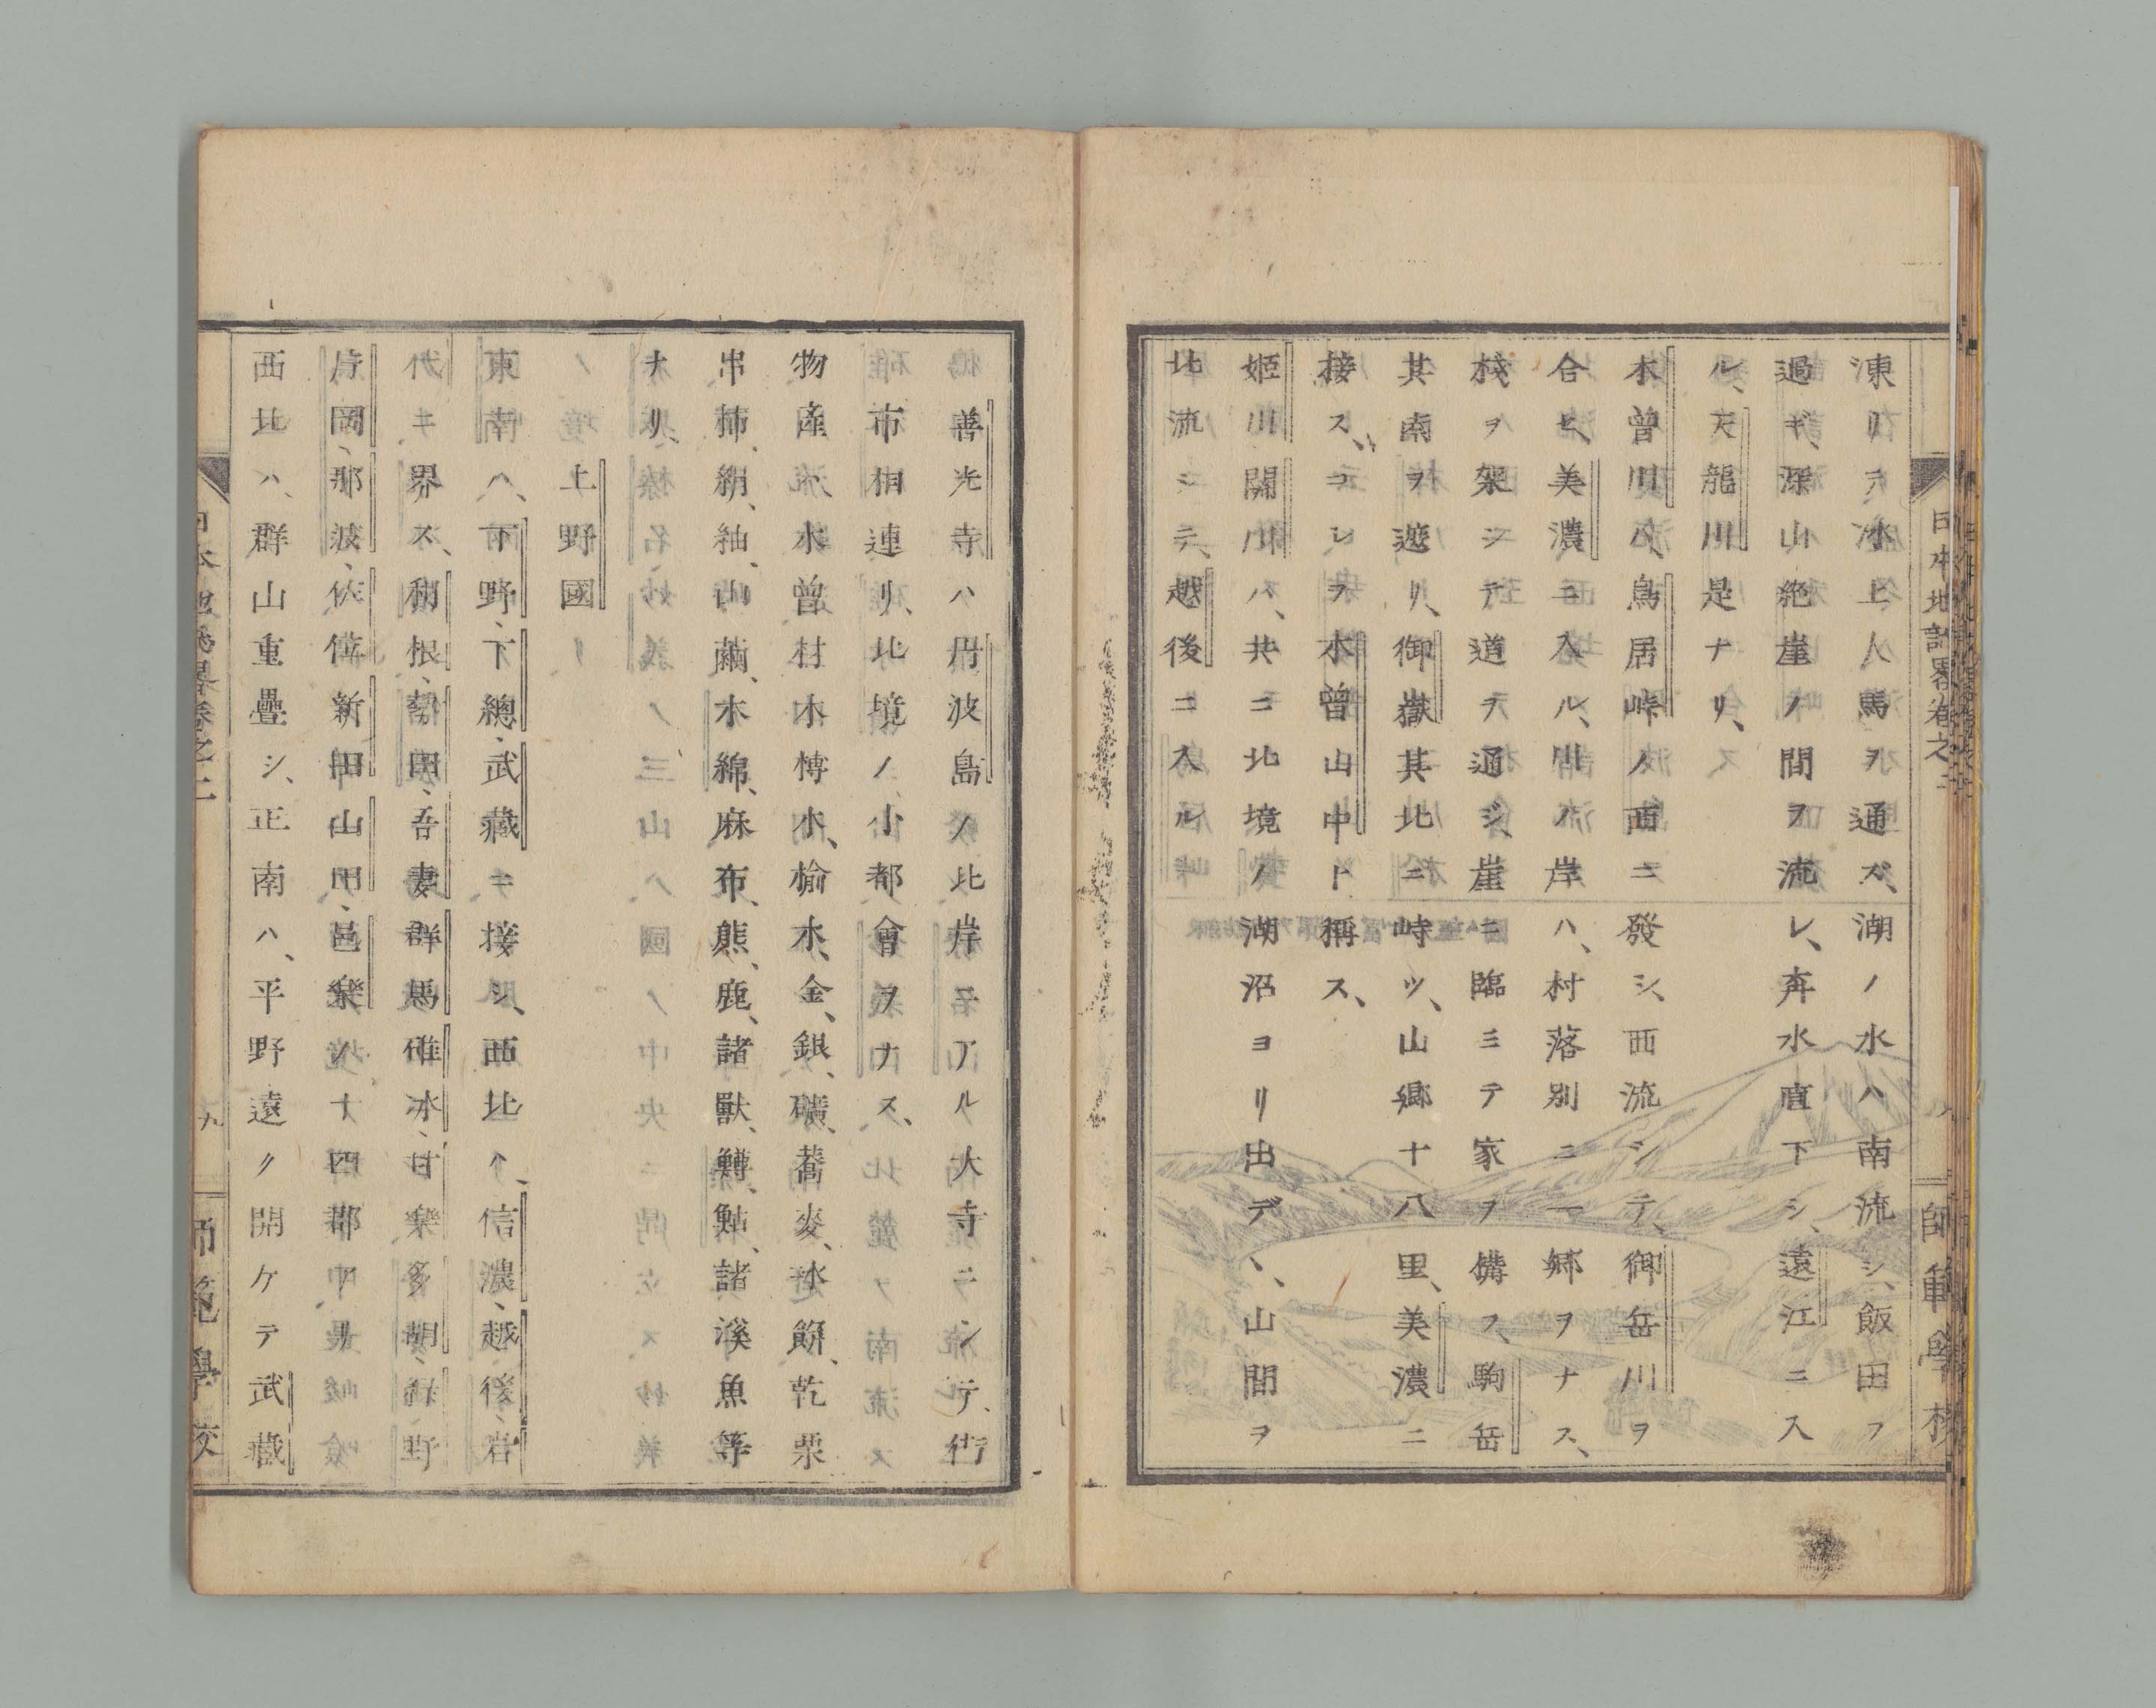 日本地誌畧卷之二
師範學校
凍リテ、氷上人馬ヲ通ズ、湖ノ水ハ南流シ、飯田ヲ
過ギ、深山絶崖ノ間ヲ流レ、奔水直下シ、遠江ニ入
ル、天龍川是ナリ、
木曾川ハ、鳥居峠ノ西ニ發シ、西流シテ、御岳川ヲ
合セ、美濃ニ入ル、川ノ岸ハ、村落別ニ一郷ヲナス、
棧ヲ架シテ道ヲ通ジ、崖ニ臨ミテ家ヲ構ス、駒岳
其南ヲ遮リ、御嶽其北ニ峙ツ、山郷十八里、美濃ニ
接ス、コレヲ木曾山中ト稱ス、
姫川關川ハ、共ニ北境ノ湖沼ヨリ出デ、山間ヲ
北流シテ、越後ニ入ル
善光寺ハ丹波島ノ北岸ニアル大寺ニシテ、街
市相連リ、北境ノ小都會ヲナス、
物産ハ木曾材木榑木、楡木、金、銀、礦、蕎麥、氷餅、乾栗
串柿、絹、紬、山繭、木綿、麻布、熊、鹿、諸獸、鱒、鮎、諸溪魚等
ナリ、
上野國
東南ハ、下野、下總、武藏ニ接シ、西北ハ、信濃、越後、岩
代ニ界ス、利根、勢田、吾妻、群馬、碓氷、甘樂、多胡、緑野
片岡、那波、佐位、新田、山田、邑樂ノ十四郡アリ、
西北ハ、群山重疊シ、正南ハ、平野遠ク開ケテ武藏
九
師範學校